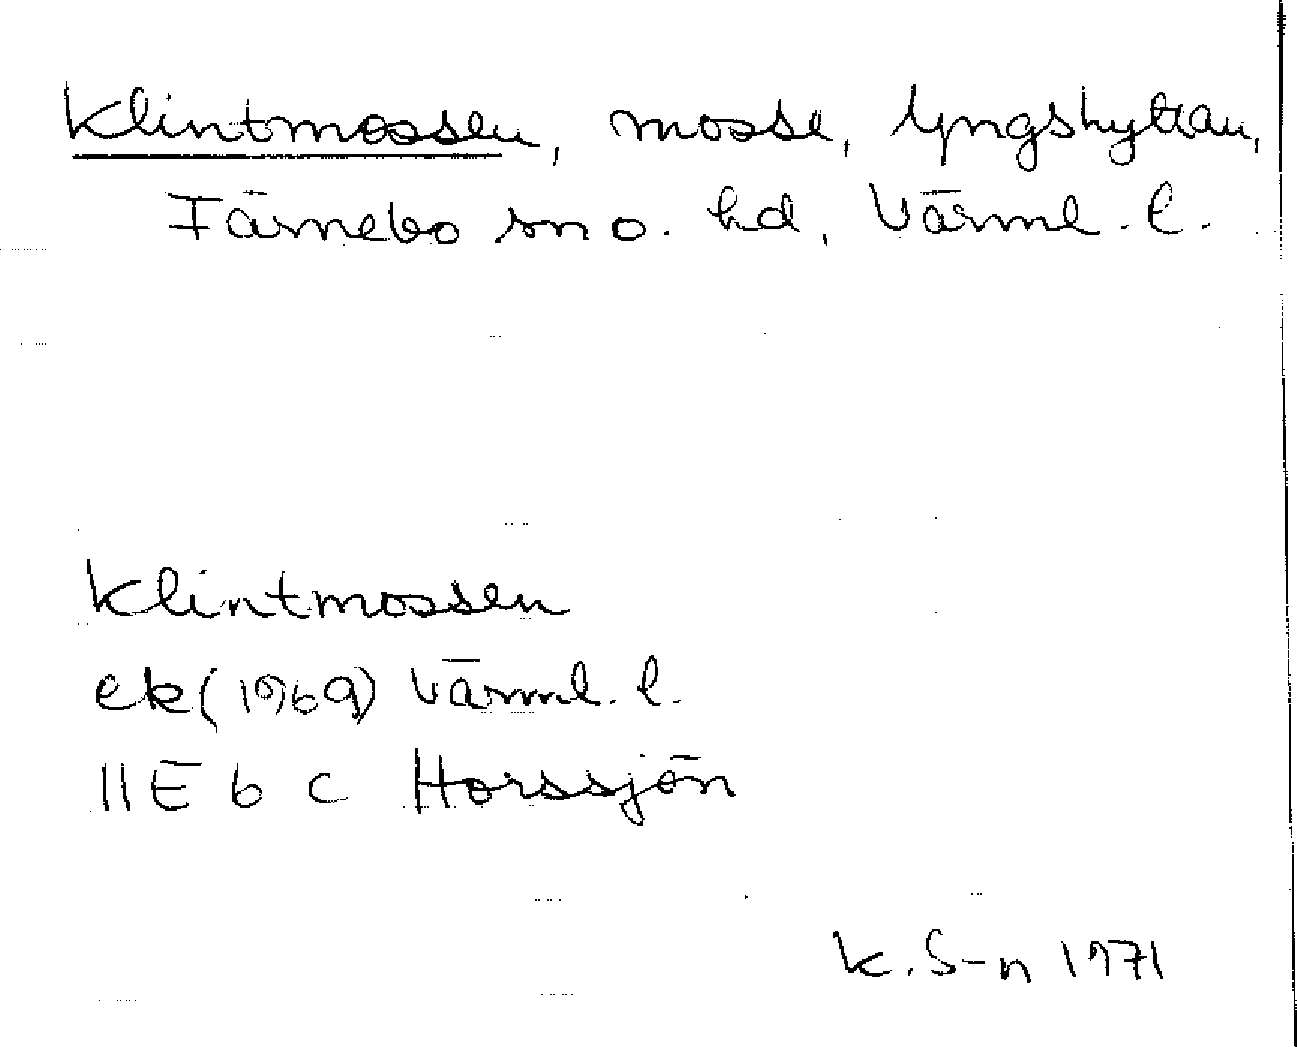 Klintmossen, mosse, Lyngshyttan,
Färnebo sn o. hd, Värml. l.
Klintmossen
ek (1969) Värml. l.
11E 6 c Horssjön
K. S-n 1971